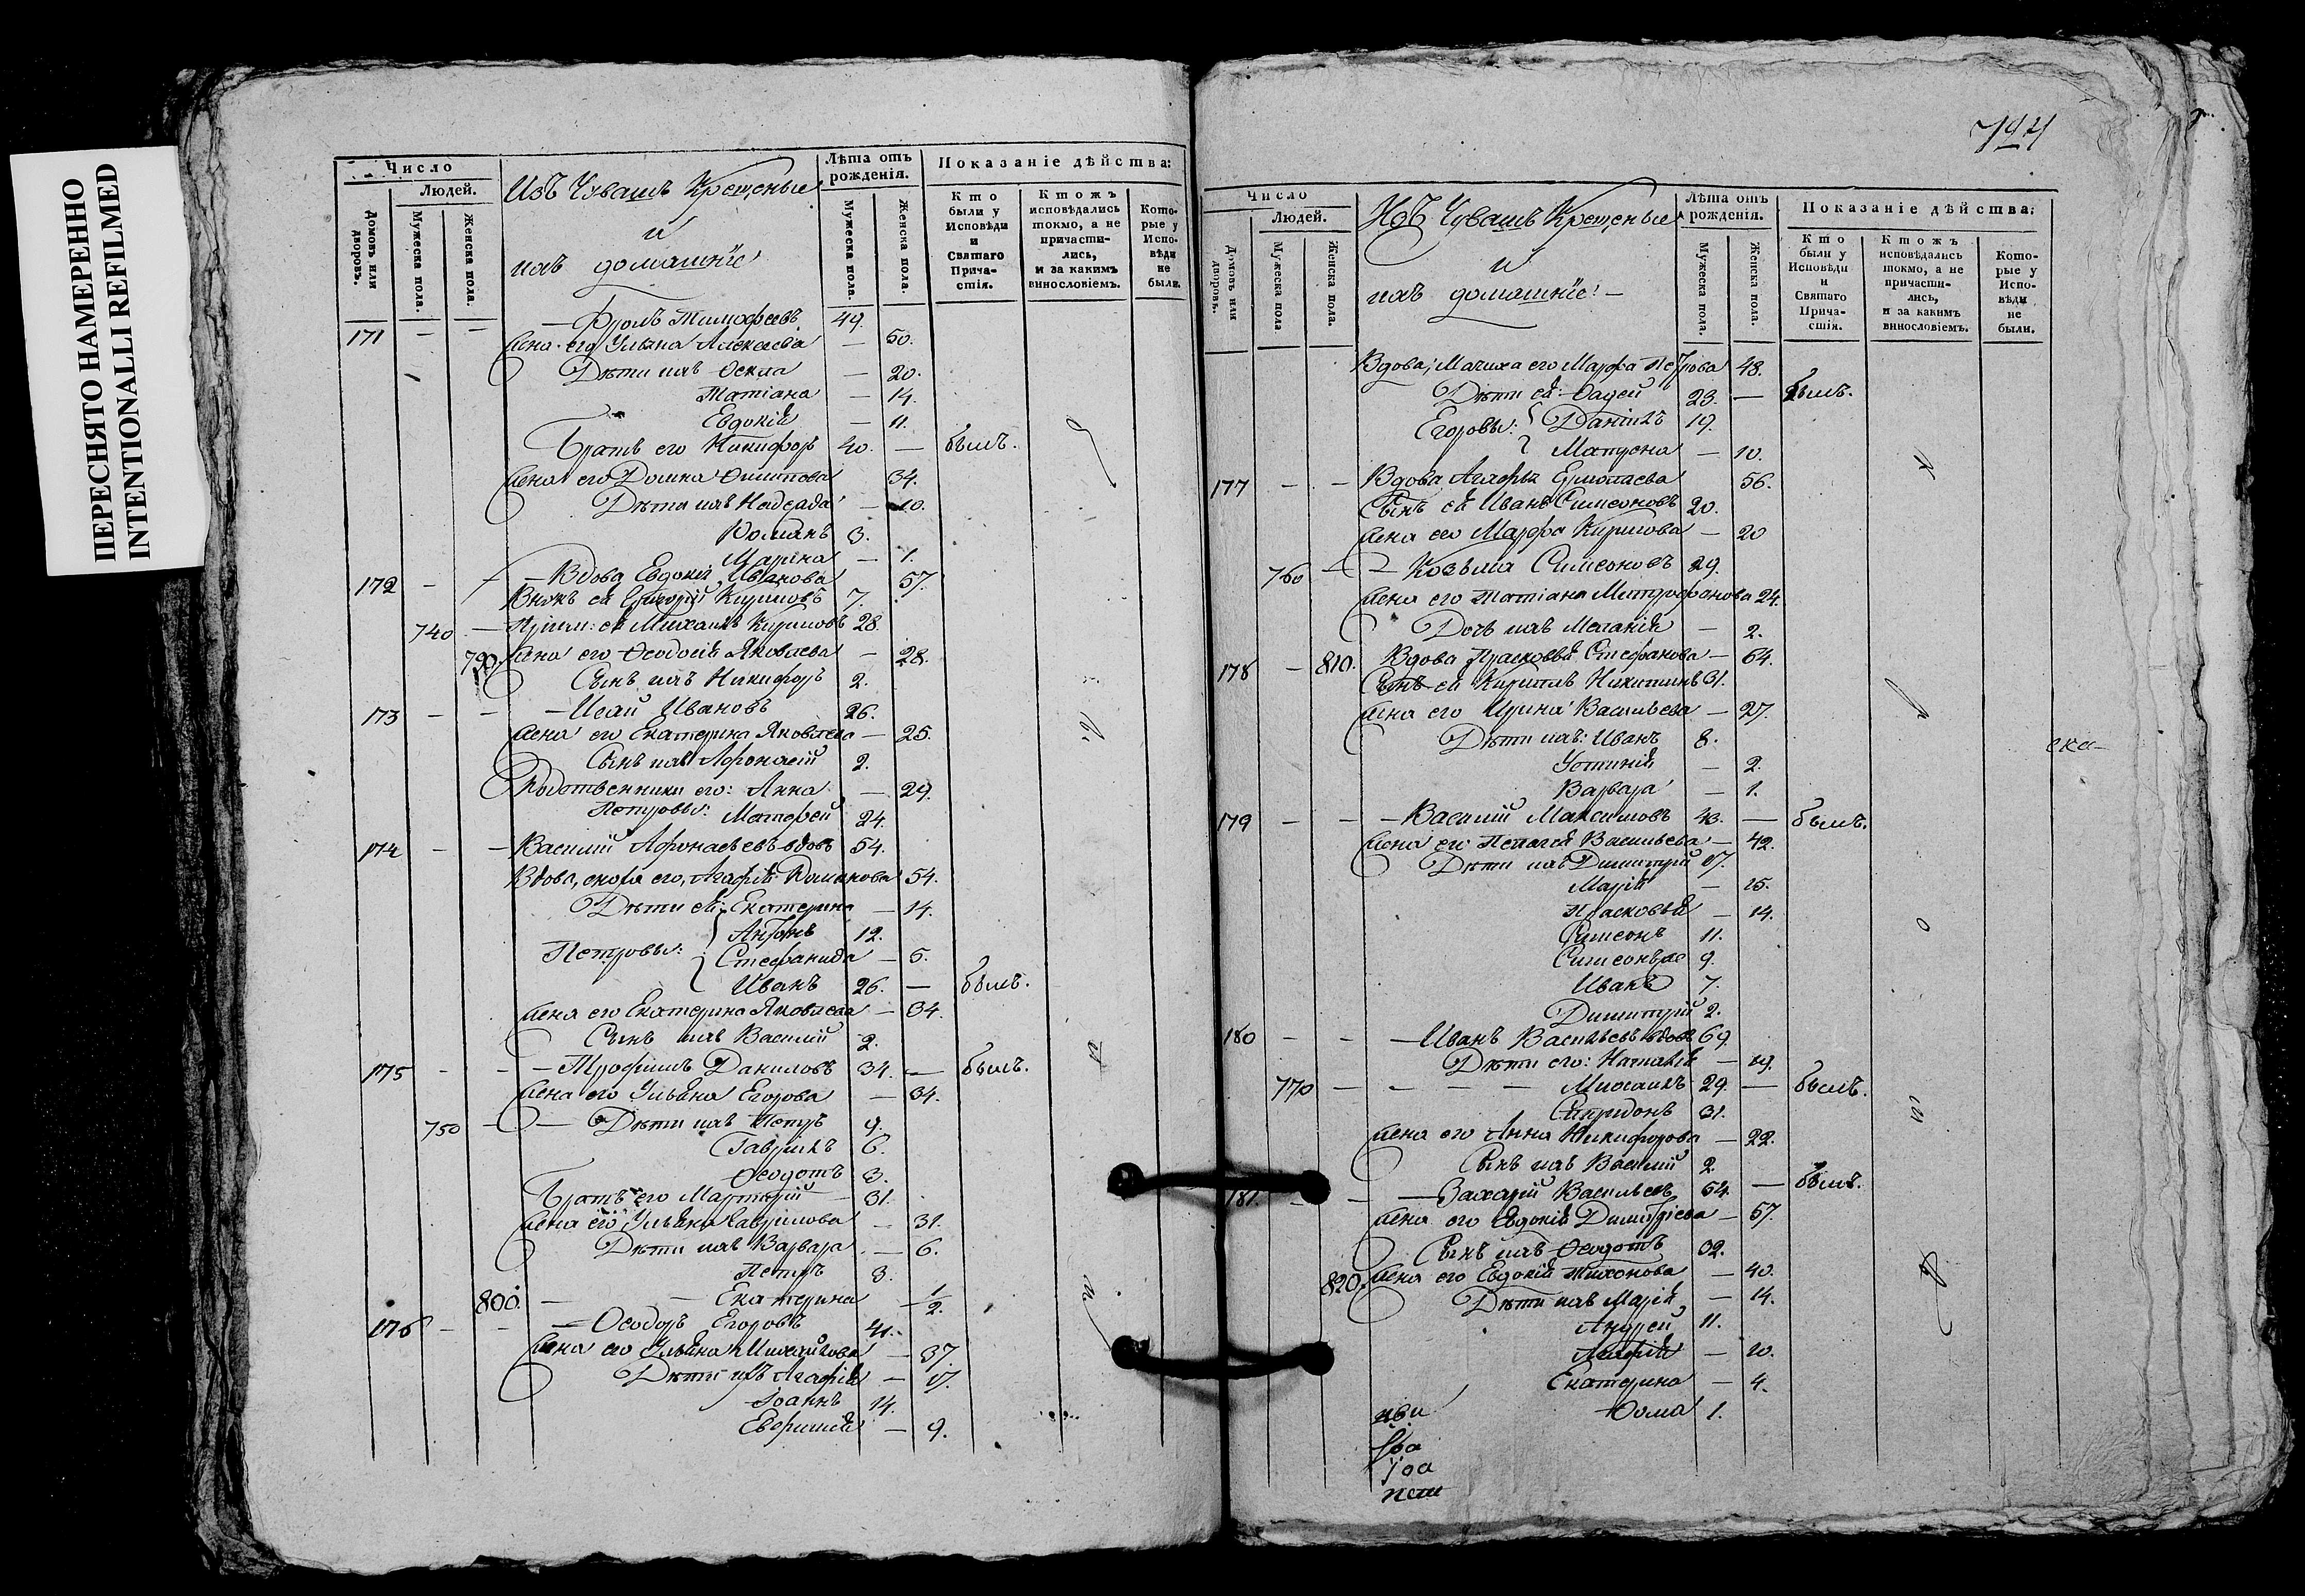 ПЕРЕСНЯТО НАМЕРЕННО
INTENTIONALLI REFILMED
Число
Людей.
Домовъ или дворовъ.
Мужеска пола.
Женска пола.
Изъ Чувашъ Крещеные
и
ихъ домашніе
Лѣта отъ рожденія.
Мужеска пола.
Женска пола.
Показаніе дѣйства:
Кто были у Исповѣди и Святаго Причастія.
Ктожъ исповѣдались токмо, а не причастились, и за какимъ винословіемъ.
Которые у Исповѣди не были.
171 — — — Фролъ Тимофеевъ 49.
Жена его Ульяна Алексеева — 50.
Дѣти ихъ Фекла — 20.
Татіана — 14.
Евдокія — 11.
Братъ его Никифоръ 40. — былъ.
Жена его Домна Филипова 34.
Дѣти ихъ Надежда — 10.
Романъ 3.
Марина — 1.
172 — — — Вдова Евдокія Иванова 57.
Внукъ ея Григорій Кириловъ 7.
740 — Михаилъ Кириловъ 28.
790 Жена его Феодосія Яковлева — 28.
Сынъ ихъ Никифоръ 2.
173 — — — Исай Ивановъ 26.
Жена его Екатерина Яковлева — 25.
Сынъ ихъ Афонасій 2.
Родственники его: Анна — 29.
Петровы: Матфей 24.
174 — — Василій Афонасьевъ вдовъ 54.
Вдова, сноха его, Агафія Романова 54.
Дѣти ея: Екатерина — 14.
Антонъ 12.
Петровы: Стефанида — 5.
Иванъ 26. — былъ.
Жена его Екатерина Яковлева — 34.
Сынъ ихъ Василій 2.
175 — — — Трофимъ Даниловъ 34. — былъ.
Жена его Ульяна Егорова — 34.
750 — — Дѣти ихъ Петръ 9.
Гаврилъ 6.
Феодотъ 3.
Братъ его 31.
Жена его Ульяна Гаврилова — 31.
Дѣти ихъ Варвара — 6.
Петръ 3.
800 — — Екатерина — 1/2.
176 — — — Феодоръ Егоровъ 41.
Жена его Ульяна Михайлова — 37.
Дѣти ихъ Агафія — 17.
Іоаннъ 14.
Евфимія — 9.
Число
Людей.
Домовъ или дворовъ.
Мужеска пола
Женска пола.
Изъ Чувашъ Крещеные
и
ихъ домашніе: —
Лѣта отъ рожденія.
Мужеска пола.
Женска пола.
Показаніе дѣйства:
Кто были у Исповѣди и Святаго Причастія.
Ктожъ исповѣдались токмо, а не причастились, и за какимъ винословіемъ.
Которые у Исповѣди не были.
Вдова, Мачиха его Марфа Петрова 48.
Дѣти ея: Фадей 23. — былъ.
Егоровы: Даніилъ 19.
Матрона — 10.
177 — — Вдова Агафья Ермолаева 56.
Сынъ ея Иванъ Симеоновъ 20.
Жена его Марфа Кирилова — 20
760 — — Козьма Симеоновъ 29.
Жена его Татіана Митрофанова 24.
Дочь ихъ Меланія — 2.
178 — 810. Вдова Прасковья Стефанова — 64.
Сынъ ея Кирилъ Никитинъ 31.
Жена его Ирина Васильева — 27.
Дѣти ихъ: Иванъ 8.
Устинія — 2.
Варвара — 1.
179 — — — Василій Максимовъ 43. — былъ.
Жена его Пелагея Васильева — 42.
Дѣти ихъ Димитрій 17.
Марія — 15.
Прасковья — 14.
Симеонъ 11.
Симеонъ же 9.
Иванъ 7.
Димитрій 2.
180 — — — Иванъ Васильевъ вдовъ 69.
Дѣти его: Наталія — 19.
770 — — — — Михаилъ 29. — былъ.
Спиридонъ 31.
Жена его Анна Никифорова — 22.
Сынъ ихъ Василій 2.
181. — — — Захарій Васильевъ 54. — былъ.
Жена его Евдокія Димитріева — 57.
Сынъ ихъ Феодотъ 32.
820. Жена его Евдокія Тихонова — 40.
Дѣти ихъ Марія — 14.
Андрей 11.
Агафія — 10.
Екатерина — 4.
Фома 1.